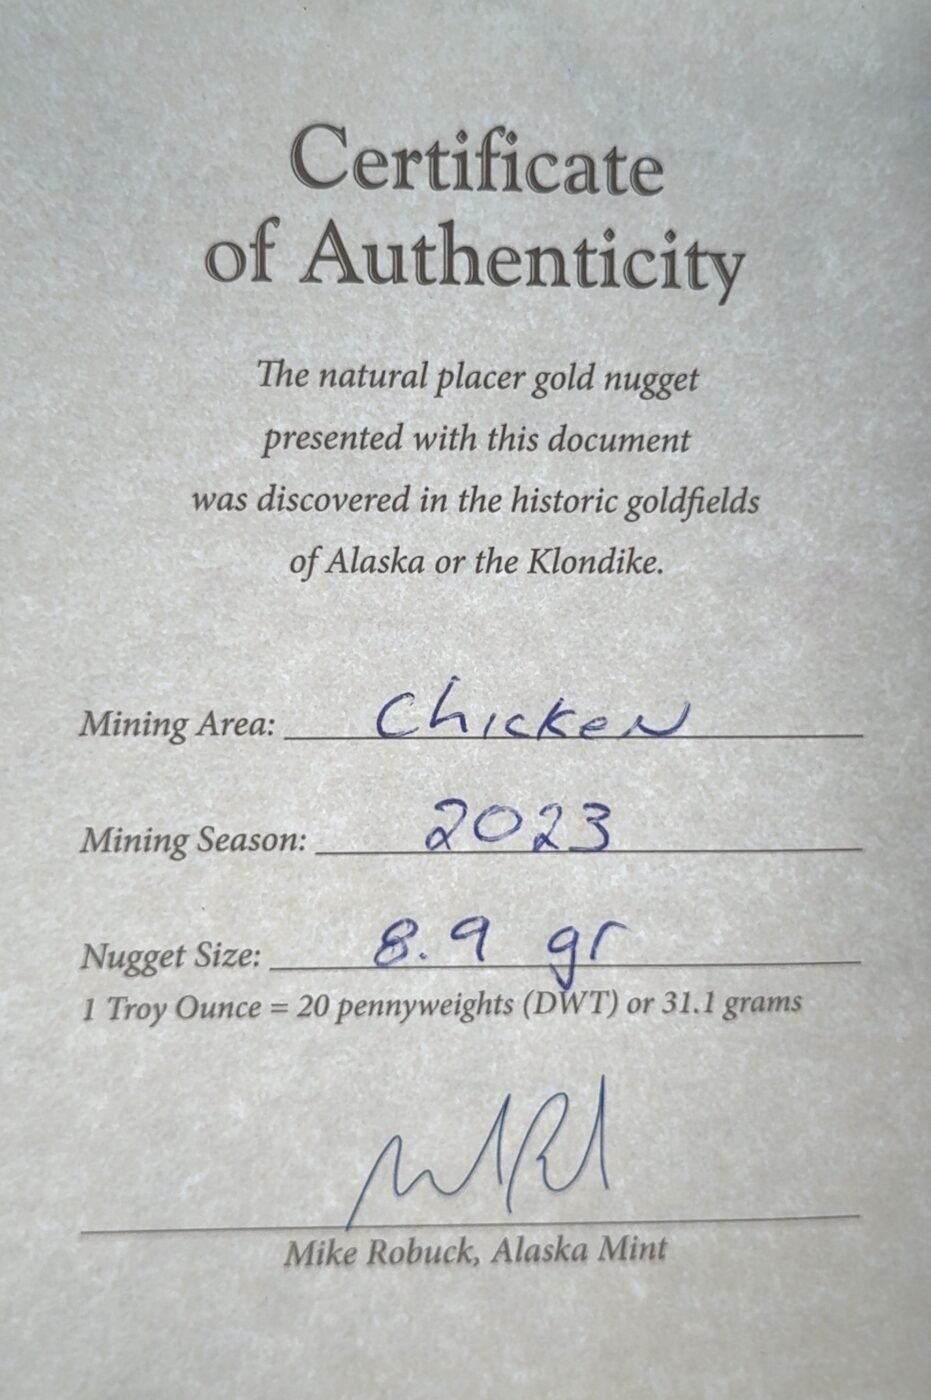 Certificate
of Authenticity
The natural placer gold nugget
presented with this document
was discovered in the historic goldfields
of Alaska or the Klondike.
Mining Area: Chicken
Mining Season: 2023
Nugget Size: 8.9 gr
1 Troy Ounce = 20 pennyweights (DWT) or 31.1 grams
Mike Robuck, Alaska Mint